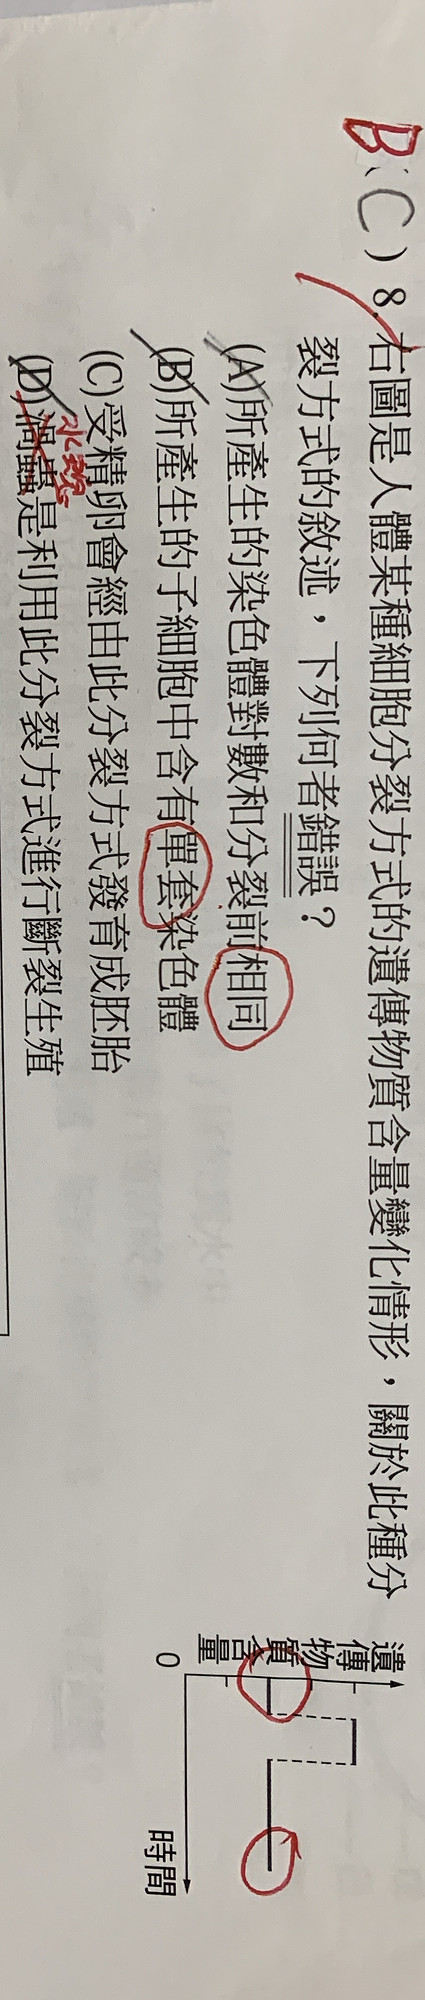 B
( C ) 8. 右圖是人體某種細胞分裂方式的遺傳物質含量變化情形，關於此種分
裂方式的敘述，下列何者錯誤？
(A)所產生的染色體對數和分裂前相同
(B)所產生的子細胞中含有單套染色體
(C)受精卵會經由此分裂方式發育成胚胎
水螅
(D)渦蟲是利用此分裂方式進行斷裂生殖
遺傳物質含量
0
時間